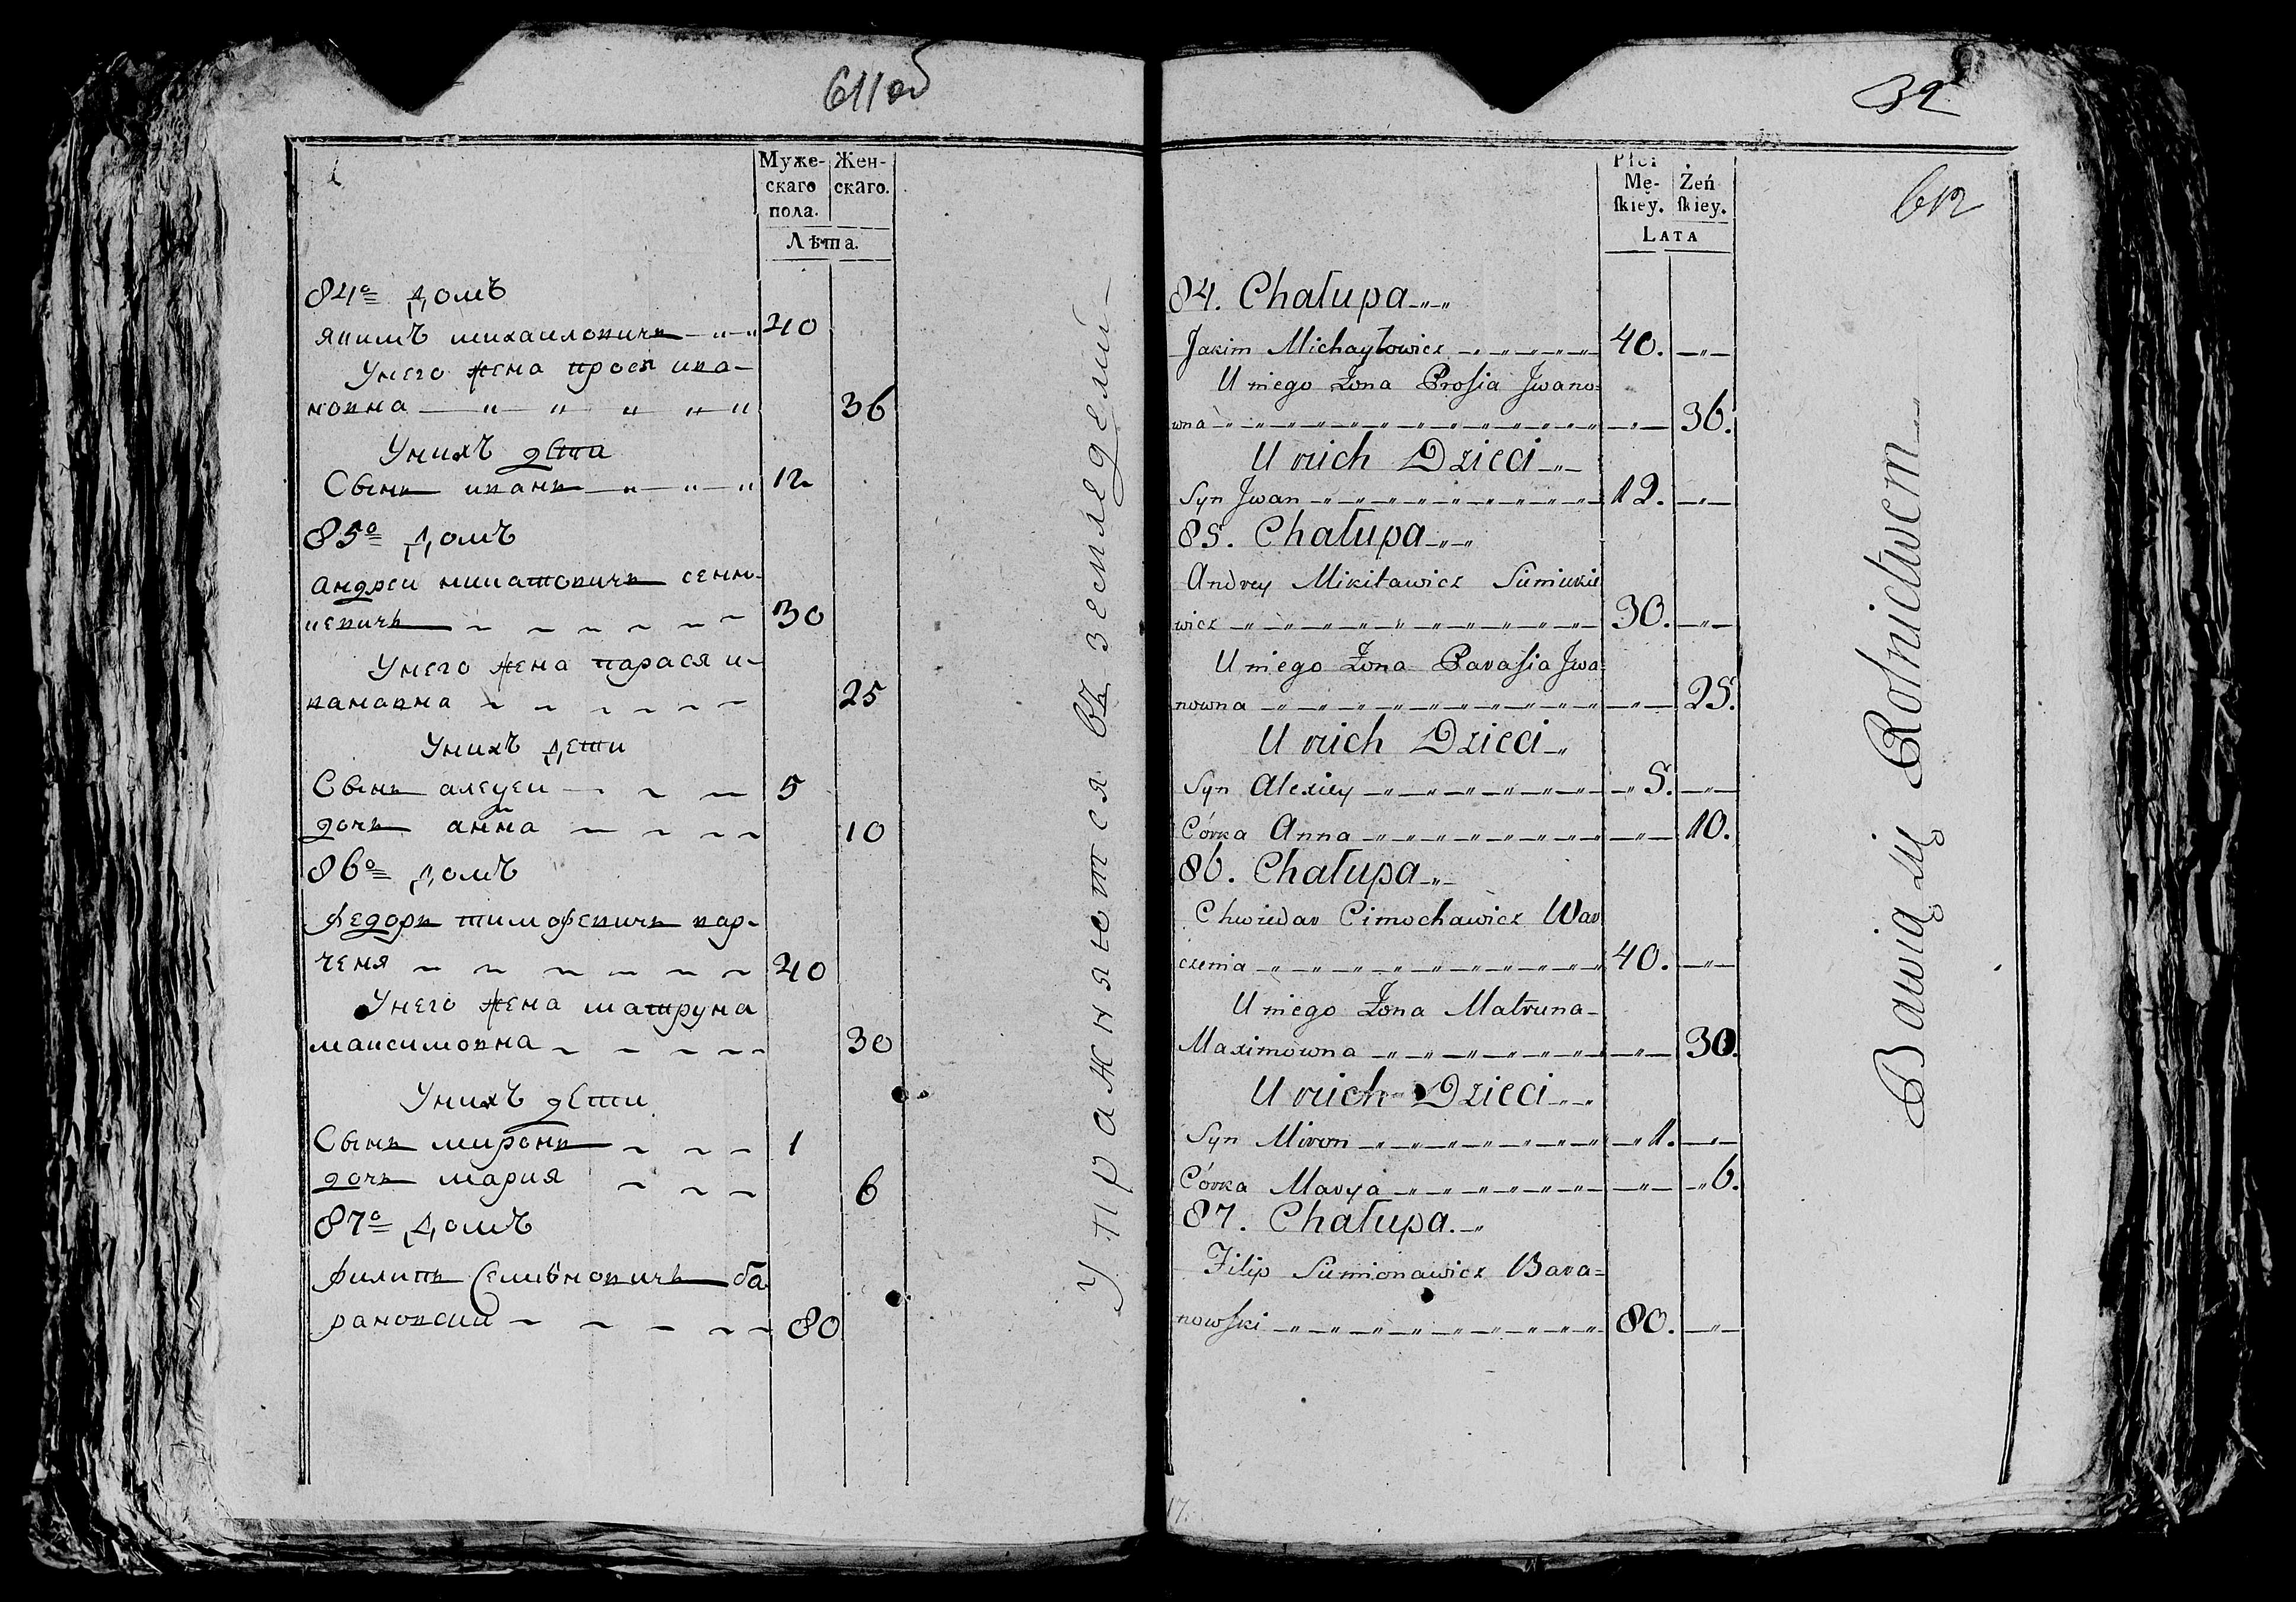 611 об
Муже- Жен-
скаго скаго.
пола.
Лѣта.
84º домъ
якимъ михаиловичъ 40
Унего жена прося ива-
новна 36
Унихъ дети
Сынъ иванъ 12
85º домъ
андреи микитовичъ семи-
кевичъ 30
Унего жена парася и-
вановна 25
Унихъ дети
Сынъ алеџеи 5
дочь анна 10
86º домъ
Федоръ тимофевичъ вар-
ченя 40
Унего жена матруна
максимовна 30
Унихъ дети
Сынъ миронъ 1
дочь мария 6
87º домъ
Филипъ Семіоновичъ ба
рановски 80
Упражняются въ земледелии
32
612
Płci
Mę- Żeń
skiey. skiey.
LATA
84. Chałupa
Jakim Michayłowicz 40.
U niego Żona Prosia Jwano=
wna 36.
U nich Dzieci
Syn Jwan 12.
85. Chałupa
Andrey Mikitawicz Simiukie
wicz 30.
U niego Żona Parasia Jwa=
nowna 25.
U nich Dzieci
Syn Alexiey 5.
Córka Anna 10.
86. Chałupa
Chwiedar Cimochawicz War
czenia 40.
U niego Żona Matruna
Maximowna 30.
U nich Dzieci
Syn Miron 1.
Córka Marya 6.
87. Chałupa
Filip Simionawicz Bara=
nowski 80.
Bawią się Rolnictwem
17.